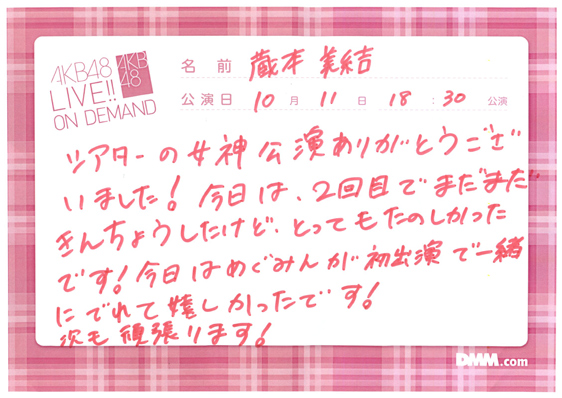 AKB48
LIVE!!
ON DEMAND
AKB
48
名前 蔵本 美結
公演日 10月 11日 18:30 公演
シアターの女神公演ありがとうござ
いました！今日は、2回目でまだまだ
きんちょうしたけど、とってもたのしかった
です！今日はめぐみんが初出演で一緒
にでれて嬉しかったです！
次も頑張ります！
DMM.com